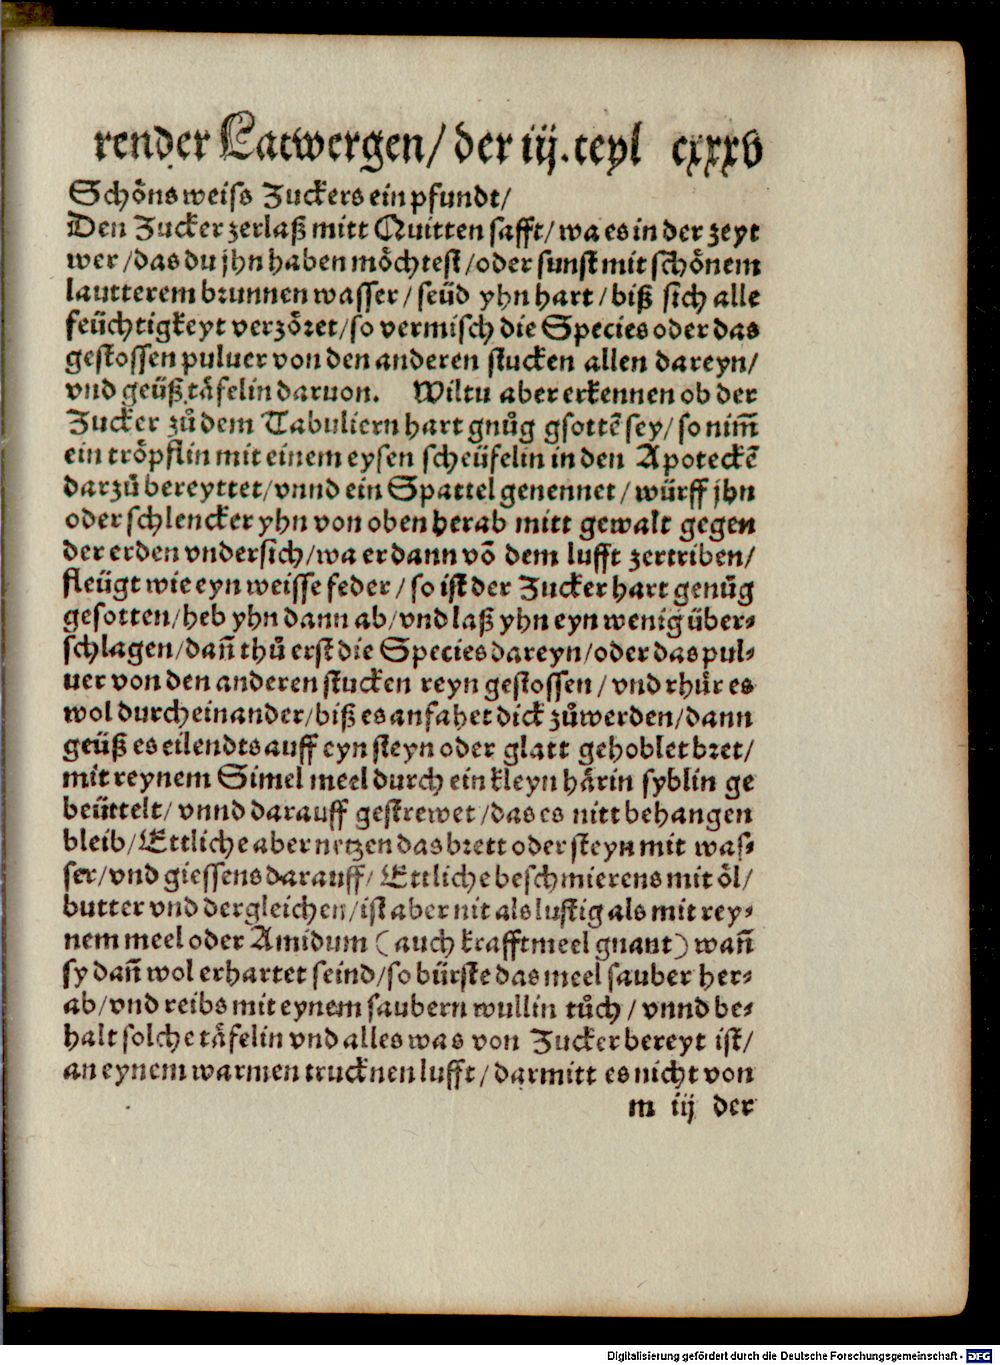 render Latwergen/ der iij. teyl cxxxv
Schöns weiss Zuckers ein pfundt/
Den Zucker zerlaß mitt Quitten safft/ wa es in der zeyt
wer/ das du jhn haben möchtest/ oder sunst mit schönem
lautterem brunnen wasser/ seüd yhn hart/ biß sich alle
feüchtigkeyt verzöret/ so vermisch die Species oder das
gestossen puluer von den anderen stucken allen dareyn/
vnd geüß täfelin daruon. Wiltu aber erkennen ob der
Zucker zů dem Tabuliern hart gnůg gsottẽ sey/ so nim̃
ein tröpflin mit einem eysen scheüfelin in den Apoteckẽ
darzů bereyttet/ vnnd ein Spattel genennet/ würff jhn
oder schlencker yhn von oben herab mitt gewalt gegen
der erden vndersich/ wa er dann võ dem lufft zertriben/
fleügt wie eyn weisse feder/ so ist der Zucker hart genůg
gesotten/ heb yhn dann ab/ vnd laß yhn eyn wenig über⸗
schlagen/ dañ thů erst die Species dareyn/ oder das pul⸗
uer von den anderen stucken reyn gestossen/ vnd rhůr es
wol durch einander/ biß es anfahet dick zůwerden/ dann
geüß es eilendts auff eyn steyn oder glatt gehoblet bret/
mit reynem Simel meel durch ein kleyn härin syblin ge
beüttelt/ vnnd darauff gestrewet/ das es nitt behangen
bleib/ Ettliche aber netzen das brett oder steyn mit was⸗
ser/ vnd giessens darauff/ Ettliche beschmierens mit öl/
butter vnd dergleichen/ ist aber nit als lustig als mit rey⸗
nem meel oder Amidum (auch krafftmeel gnant) wañ
sy dañ wol erhartet seind/ so bürste das meel sauber her⸗
ab/ vnd reibs mit eynem saubern wullin tůch/ vnnd be⸗
halt solche täfelin vnd alles was von Zucker bereyt ist/
an eynem warmen trucknen lufft/ darmitt es nicht von
m iij der
Digitalisierung gefördert durch die Deutsche Forschungsgemeinschaft - DFG